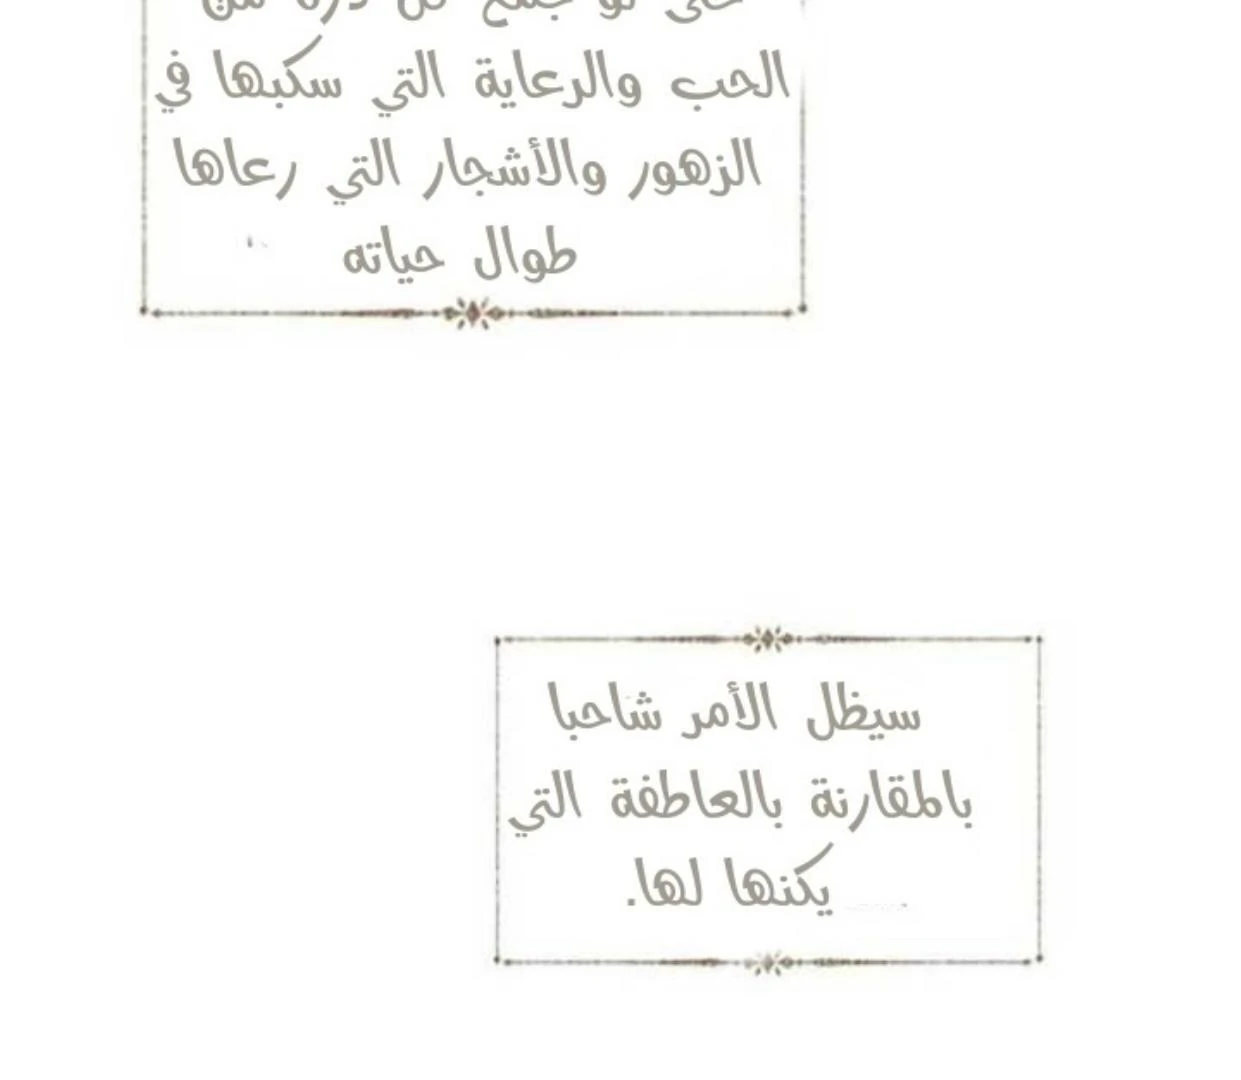 حتى لو جمع كل ذرة من
الحب والرعاية التي سكبها في
الزهور والأشجار التي رعاها
طوال حياته
سيظل الأمر شاحبا
بالمقارنة بالعاطفة التي
يكنها لها.